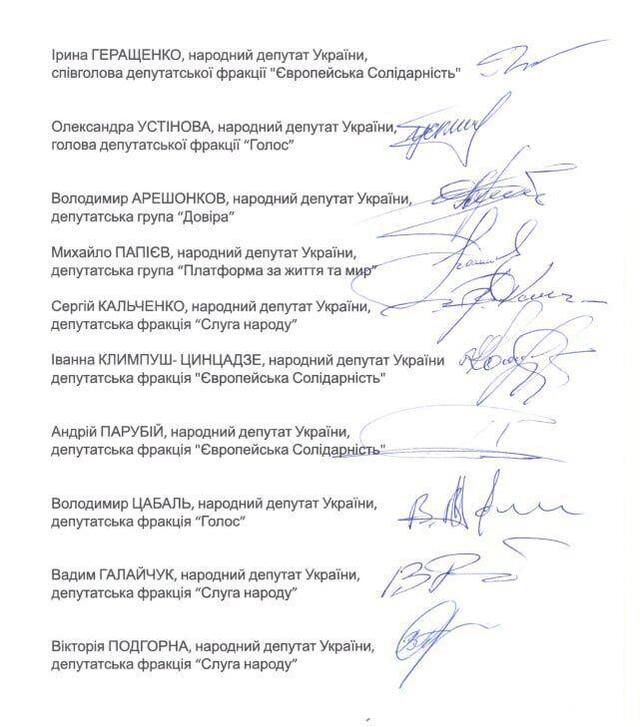 Ірина ГЕРАЩЕНКО, народний депутат України,
співголова депутатської фракції "Європейська Солідарність"
Олександра УСТІНОВА, народний депутат України,
голова депутатської фракції “Голос”
Володимир АРЕШОНКОВ, народний депутат України,
депутатська група “Довіра”
Михайло ПАПІЄВ, народний депутат України,
депутатська група “Платформа за життя та мир”
Сергій КАЛЬЧЕНКО, народний депутат України,
депутатська фракція “Слуга народу”
Іванна КЛИМПУШ- ЦИНЦАДЗЕ, народний депутат України
депутатська фракція "Європейська Солідарність"
Андрій ПАРУБІЙ, народний депутат України,
депутатська фракція "Європейська Солідарність"
Володимир ЦАБАЛЬ, народний депутат України,
депутатська фракція “Голос”
Вадим ГАЛАЙЧУК, народний депутат України,
депутатська фракція “Слуга народу”
Вікторія ПОДГОРНА, народний депутат України,
депутатська фракція “Слуга народу”